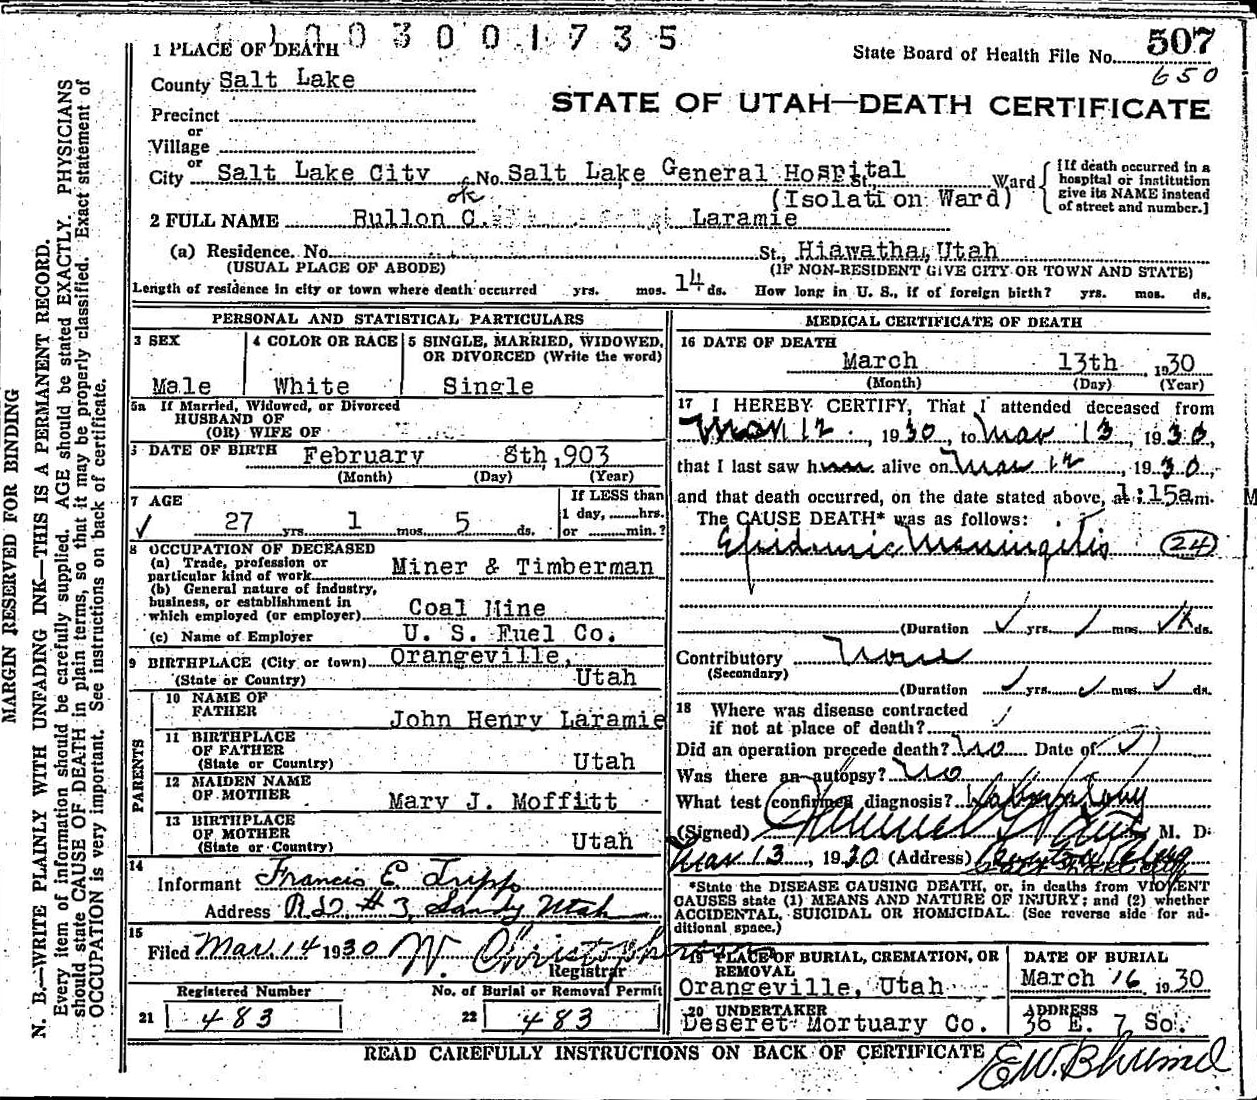 1003001735
1 PLACE OF DEATH
State Board of Health File No. 507
650
County Salt Lake
STATE OF UTAH—DEATH CERTIFICATE
Precinct
or
Village
or
City Salt Lake City No. Salt Lake General Hospital St. Ward
(Isolation Ward)
[If death occurred in a hospital or institution give its NAME instead of street and number.]
ok
2 FULL NAME Rullon C. Laramie
(a) Residence. No. St., Hiawatha, Utah
(USUAL PLACE OF ABODE) (IF NON-RESIDENT GIVE CITY OR TOWN AND STATE)
Length of residence in city or town where death occurred yrs. mos. 14 ds. How long in U. S., if of foreign birth? yrs. mos. ds.
PERSONAL AND STATISTICAL PARTICULARS
3 SEX
Male
4 COLOR OR RACE
White
5 SINGLE, MARRIED, WIDOWED,
OR DIVORCED (Write the word)
Single
5a If Married, Widowed, or Divorced
HUSBAND OF
(OR) WIFE OF
DATE OF BIRTH February 8th, 903
(Month) (Day) (Year)
7 AGE
27 yrs. 1 mos. 5 ds.
If LESS than
1 day, hrs.
or min.?
8 OCCUPATION OF DECEASED
(a) Trade, profession or
particular kind of work Miner & Timberman
(b) General nature of industry,
business, or establishment in
which employed (or employer) Coal Mine
(c) Name of Employer U. S. Fuel Co.
9 BIRTHPLACE (City or town) Orangeville,
(State or Country) Utah
PARENTS
10 NAME OF
FATHER John Henry Laramie
11 BIRTHPLACE
OF FATHER
(State or Country) Utah
12 MAIDEN NAME
OF MOTHER Mary J. Moffitt
13 BIRTHPLACE
OF MOTHER
(State or Country) Utah
14
Informant Francis E Tripp
Address R.D. #3, Sandy Utah
15
Filed Mar. 14 1930 W. Christopherson
Registrar
Registered Number No. of Burial or Removal Permit
21 483 22 483
MEDICAL CERTIFICATE OF DEATH
16 DATE OF DEATH
March 13th, 1930
(Month) (Day) (Year)
17 I HEREBY CERTIFY, That I attended deceased from
Mar 12, 1930, to Mar 13, 1930,
that I last saw h alive on Mar 12, 1930,
and that death occurred, on the date stated above, at 1:15a m. M
The CAUSE DEATH* was as follows:
Epidemic Meningitis (24)
(Duration yrs. mos. ds.
Contributory None
(Secondary)
(Duration yrs. mos. ds.
18 Where was disease contracted
if not at place of death?
Did an operation precede death? No Date of
Was there an autopsy? No
What test confirmed diagnosis?
(Signed) M. D.
Mar 13, 1930 (Address)
*State the DISEASE CAUSING DEATH, or, in deaths from VIOLENT
CAUSES state (1) MEANS AND NATURE OF INJURY; and (2) whether
ACCIDENTAL, SUICIDAL OR HOMICIDAL. (See reverse side for ad-
ditional space.)
19 PLACE OF BURIAL, CREMATION, OR
REMOVAL
Orangeville, Utah
DATE OF BURIAL
March 16, 1930
20 UNDERTAKER
Deseret Mortuary Co.
ADDRESS
36 E. 7 So.
READ CAREFULLY INSTRUCTIONS ON BACK OF CERTIFICATE
MARGIN RESERVED FOR BINDING
N. B.—WRITE PLAINLY WITH UNFADING INK—THIS IS A PERMANENT RECORD.
Every item of information should be carefully supplied. AGE should be stated EXACTLY. PHYSICIANS
should state CAUSE OF DEATH in plain terms, so that it may be properly classified. Exact statement of
OCCUPATION is very important. See instructions on back of certificate.